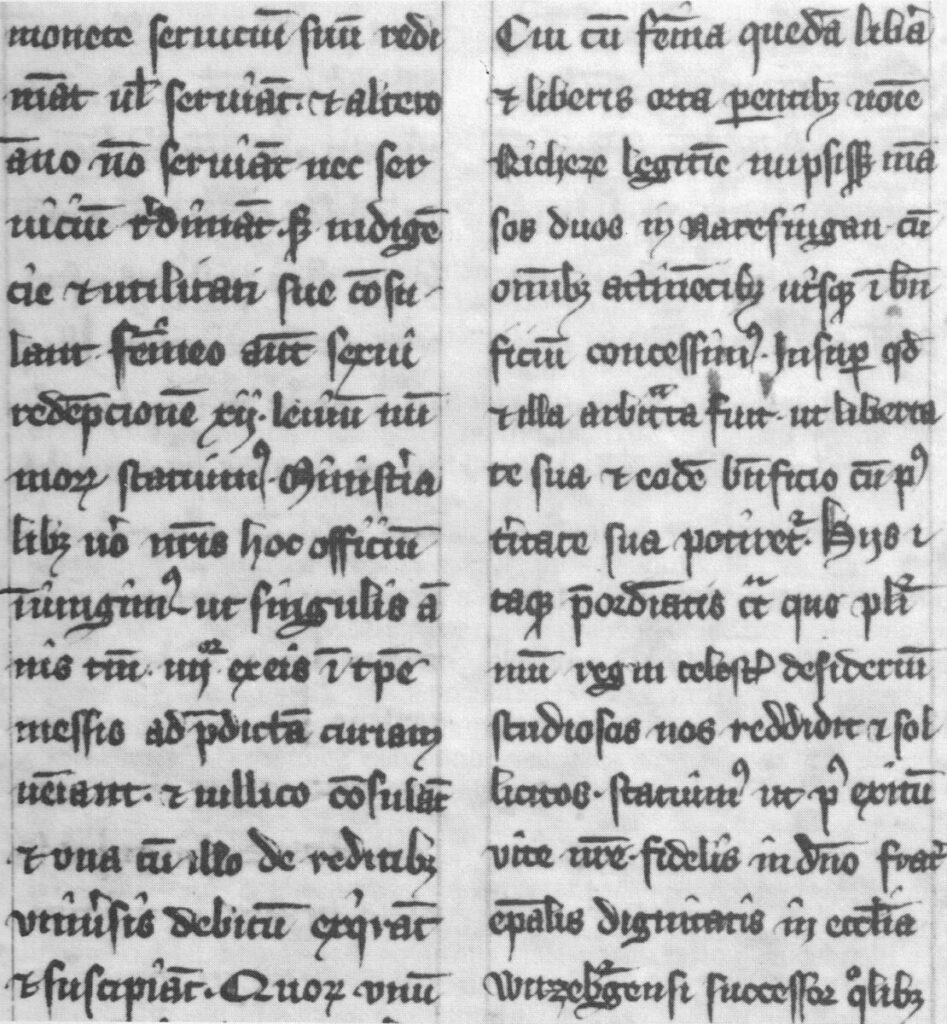 monete seruiciū suū redi
māt ul̄ seruiāt. ⁊ altero
āno nō seruiāt nec ser
uiciū redimāt. sꝫ indigē
cie ⁊ utilitati sue cōsu
lant. femineo aūt serui
redēpcionē xij. leuiū nū
moꝝ statuimꝰ. Ministia
libꝫ uo nr̄is hoc officiū
iniūgimꝰ ut singulis ā
nis tm̄. iiij exeis ī tp̄e
messis ad p̄dictā curiam
ueīant. ⁊ uillico cōsulāt
⁊ una cū illo de redditibꝫ
uniuersis debitū exqirāt
⁊ suscipiāt. Quoꝝ unū
Cui cū femīa quedā libā
⁊ liberis orta ꝑentibꝫ noīe
Richeze legitīe nupsissꝫ mā
sos duos in Maresingan cū
omībꝫ attinēcibꝫ utsqꝫ ī bn̄
ficiū concessimꝰ. Insuꝑ qd̄
⁊ illa arbitᵃta fuit. ut liberta
te sua ⁊ eodē bn̄ficio cū pꝰ
titate sua potiret. Hijs i
taqꝫ p̄ordīatis cū que pli
mū regni celestis desideriū
studiosos nos reddidit ⁊ sol
licitos. statuimꝰ ut pꝰ exitū
vite nr̄e. fidelis in dn̄o frat
ep̄alis dignitatis in eccl̄ia
Wirzebgensi successor qͦlibꝫ